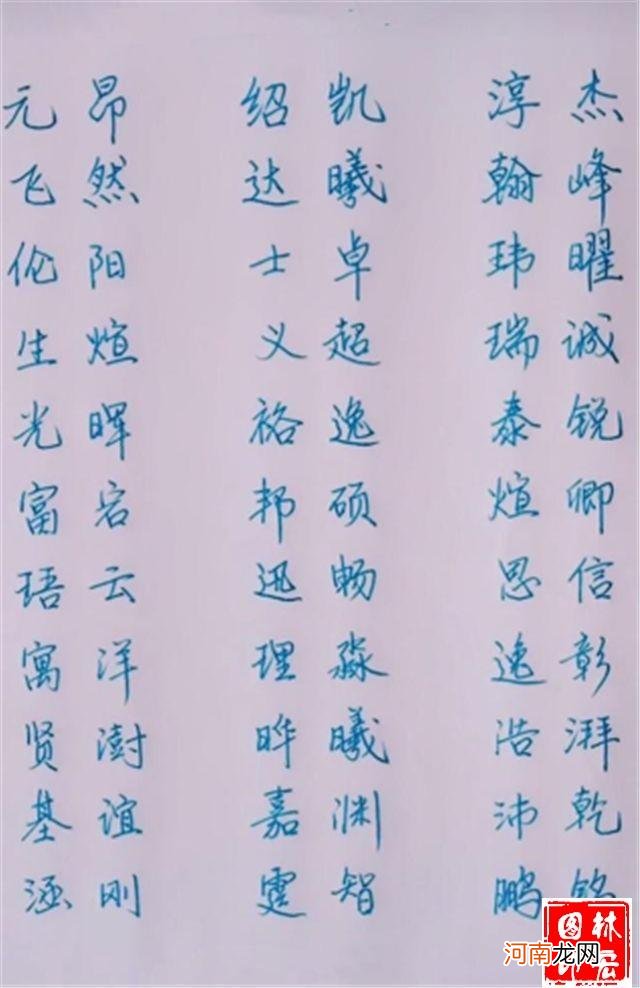 元昂 绍凯 淳杰
飞然 达曦 翰峰
伦阳 士卓 玮曜
生煊 义超 瑞诚
光晖 裕逸 泰锐
富宕 邦硕 煊卿
珸云 迅畅 思信
寓洋 理淼 逸彰
贤澍 晔曦 浩湃
基谊 嘉渊 沛乾
涵刚 霆智 鹏
河南龙网